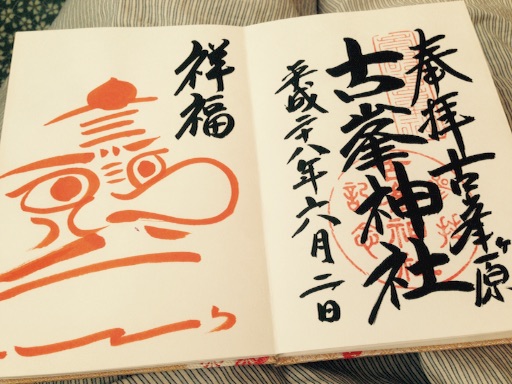 奉拝 古峯ヶ原
古峯神社
平成二十八年六月二日
祥福